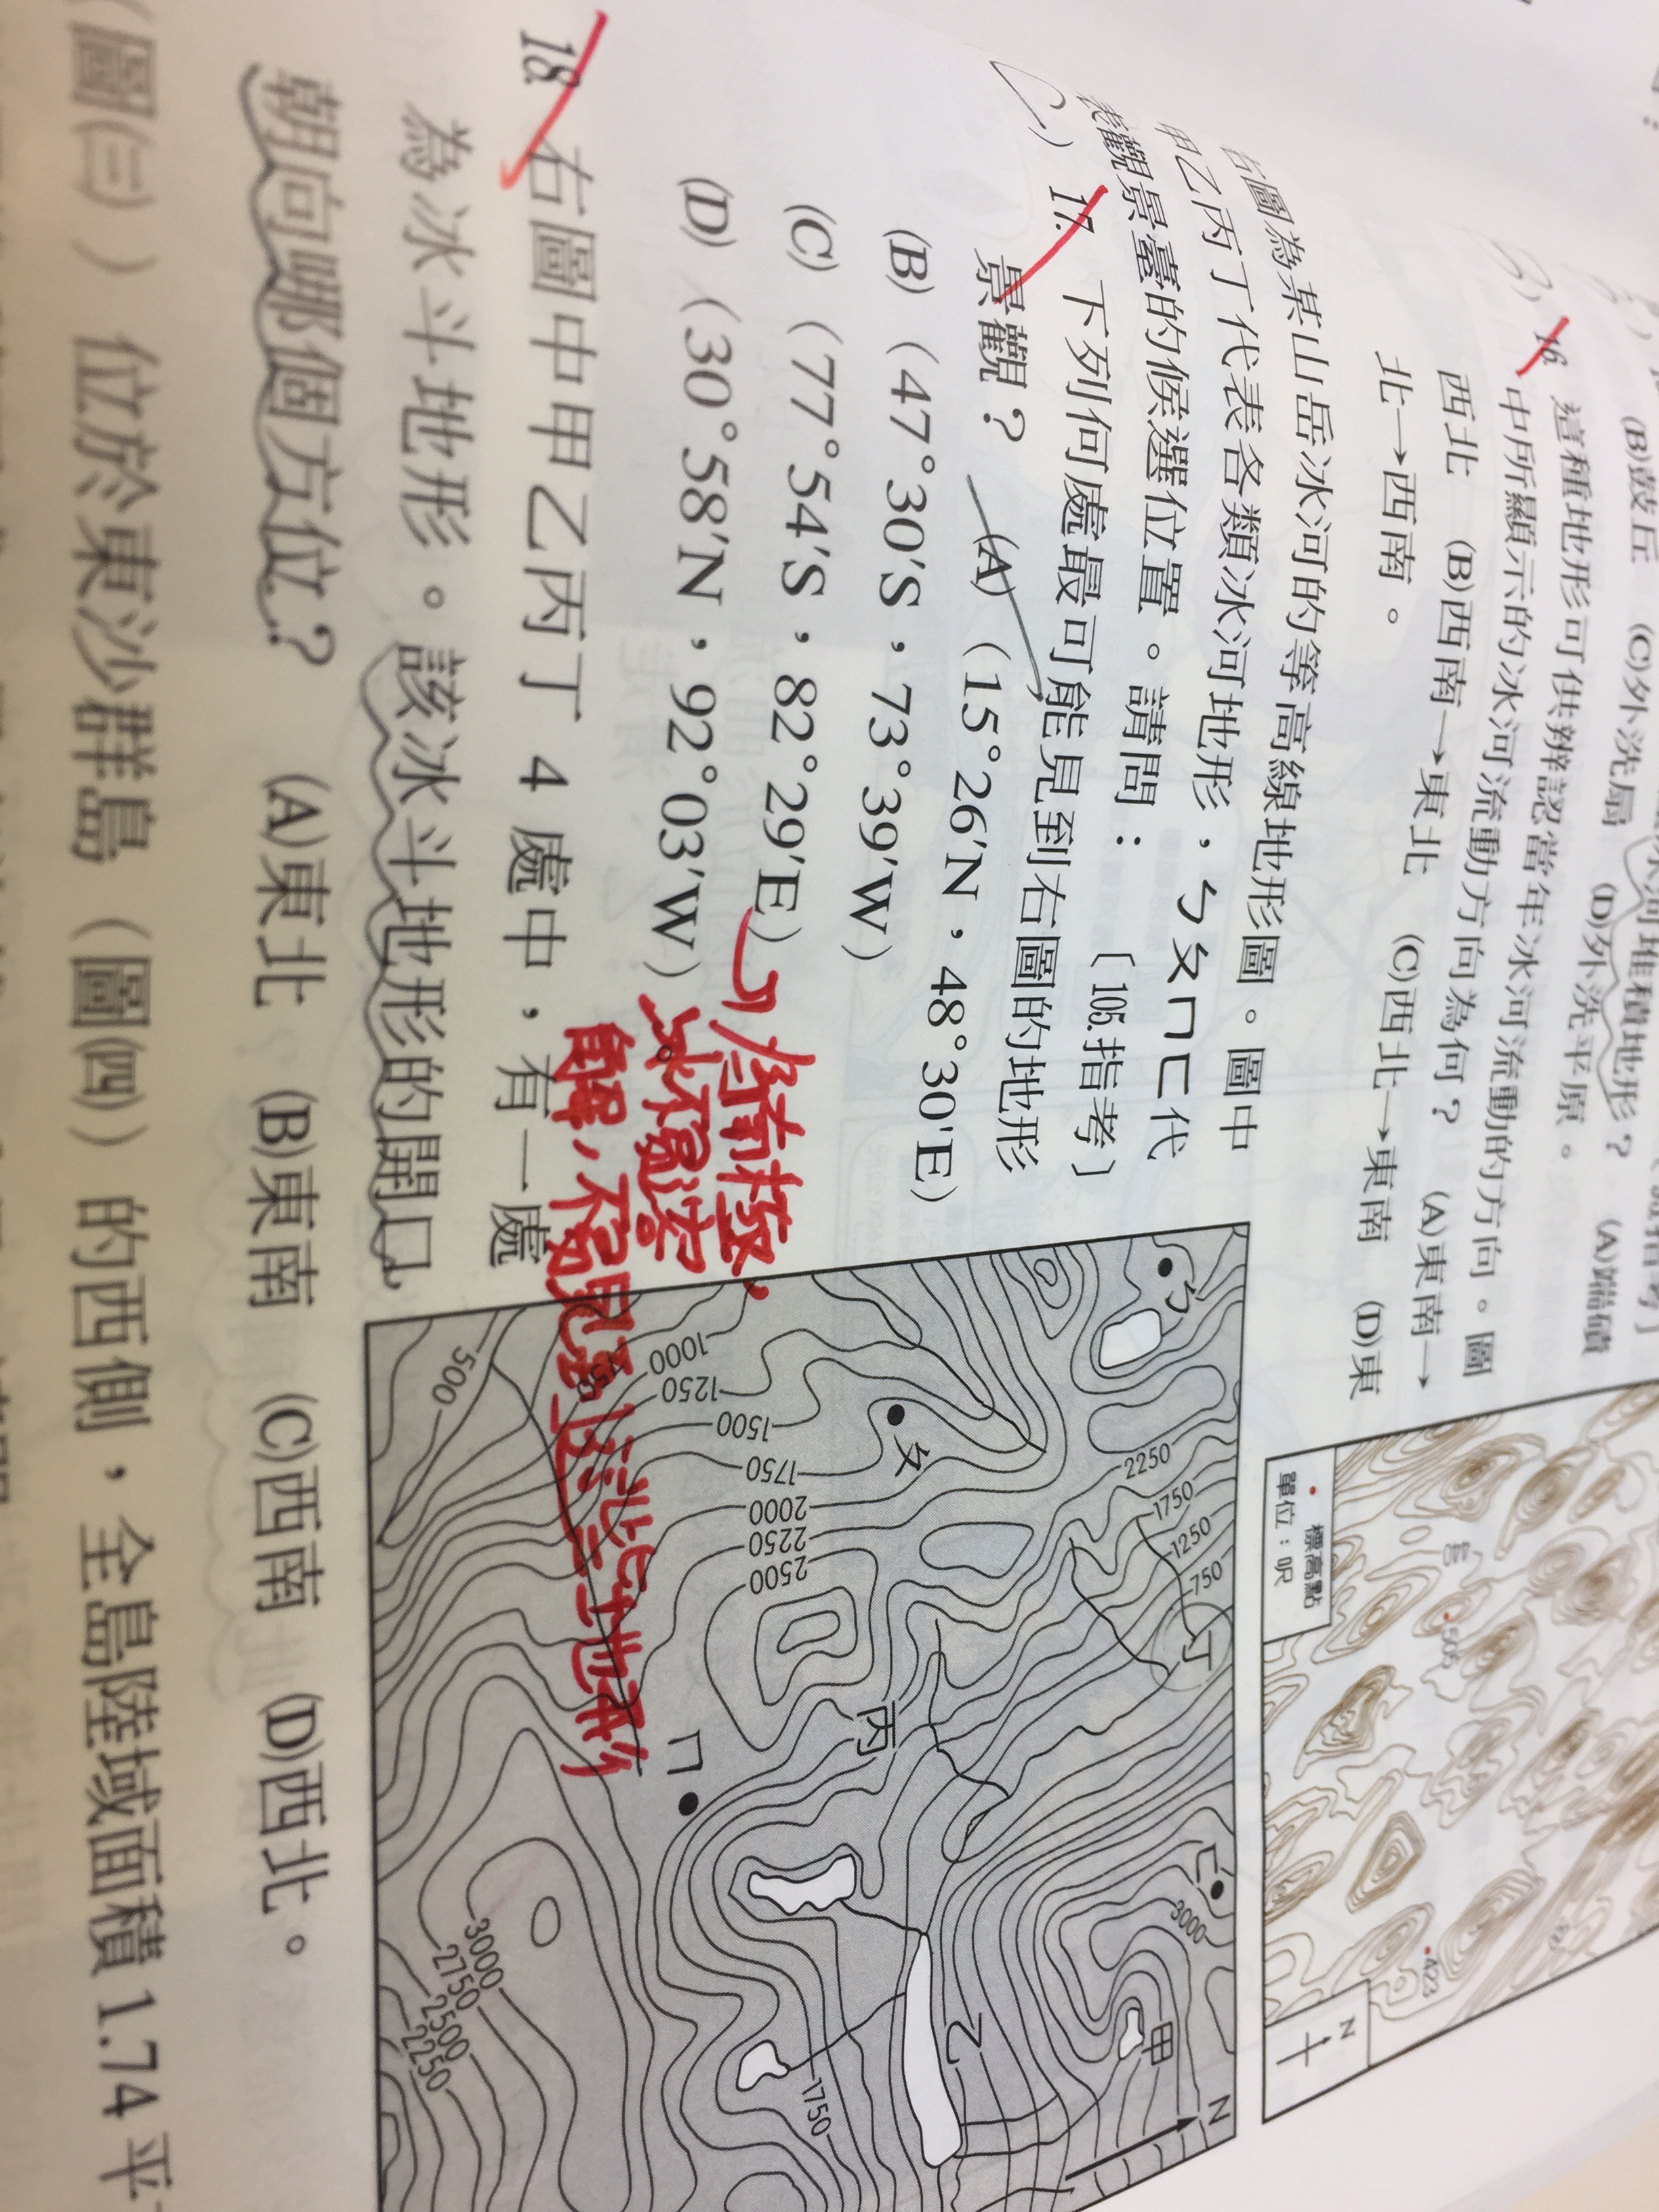 (B)鼓丘　(C)外洗扇　(D)外洗平原。
16. 這種地形可供辨認當年冰河流動的方向。圖
中所顯示的冰河流動方向為何？　(A)東南→
西北　(B)西南→東北　(C)西北→東南　(D)東
北→西南。
右圖為某山岳冰河的等高線地形圖。圖中
甲乙丙丁代表各類冰河地形，ㄅㄆㄇㄈ代
表觀景臺的候選位置。請問：　〔105.指考〕
17. 下列何處最可能見到右圖的地形
景觀？　(A)（15°26′N，48°30′E）
(B)（47°30′S，73°39′W）
(C)（77°54′S，82°29′E）
(D)（30°58′N，92°03′W）。
18. 右圖中甲乙丙丁 4 處中，有一處
為冰斗地形。該冰斗地形的開口
朝向哪個方位？　(A)東北　(B)東南　(C)西南　(D)西北。
（圖㈢）位於東沙群島（圖㈣）的西側，全島陸域面積 1.74 平
標高點
單位：呎
505
423
N
ㄅ
2250
1750
1250
750
丁
ㄈ
3000
甲
N
ㄆ
丙
乙
1000
1250
1500
1750
2000
2250
2500
1750
ㄇ
500
3000
2750
2500
2250